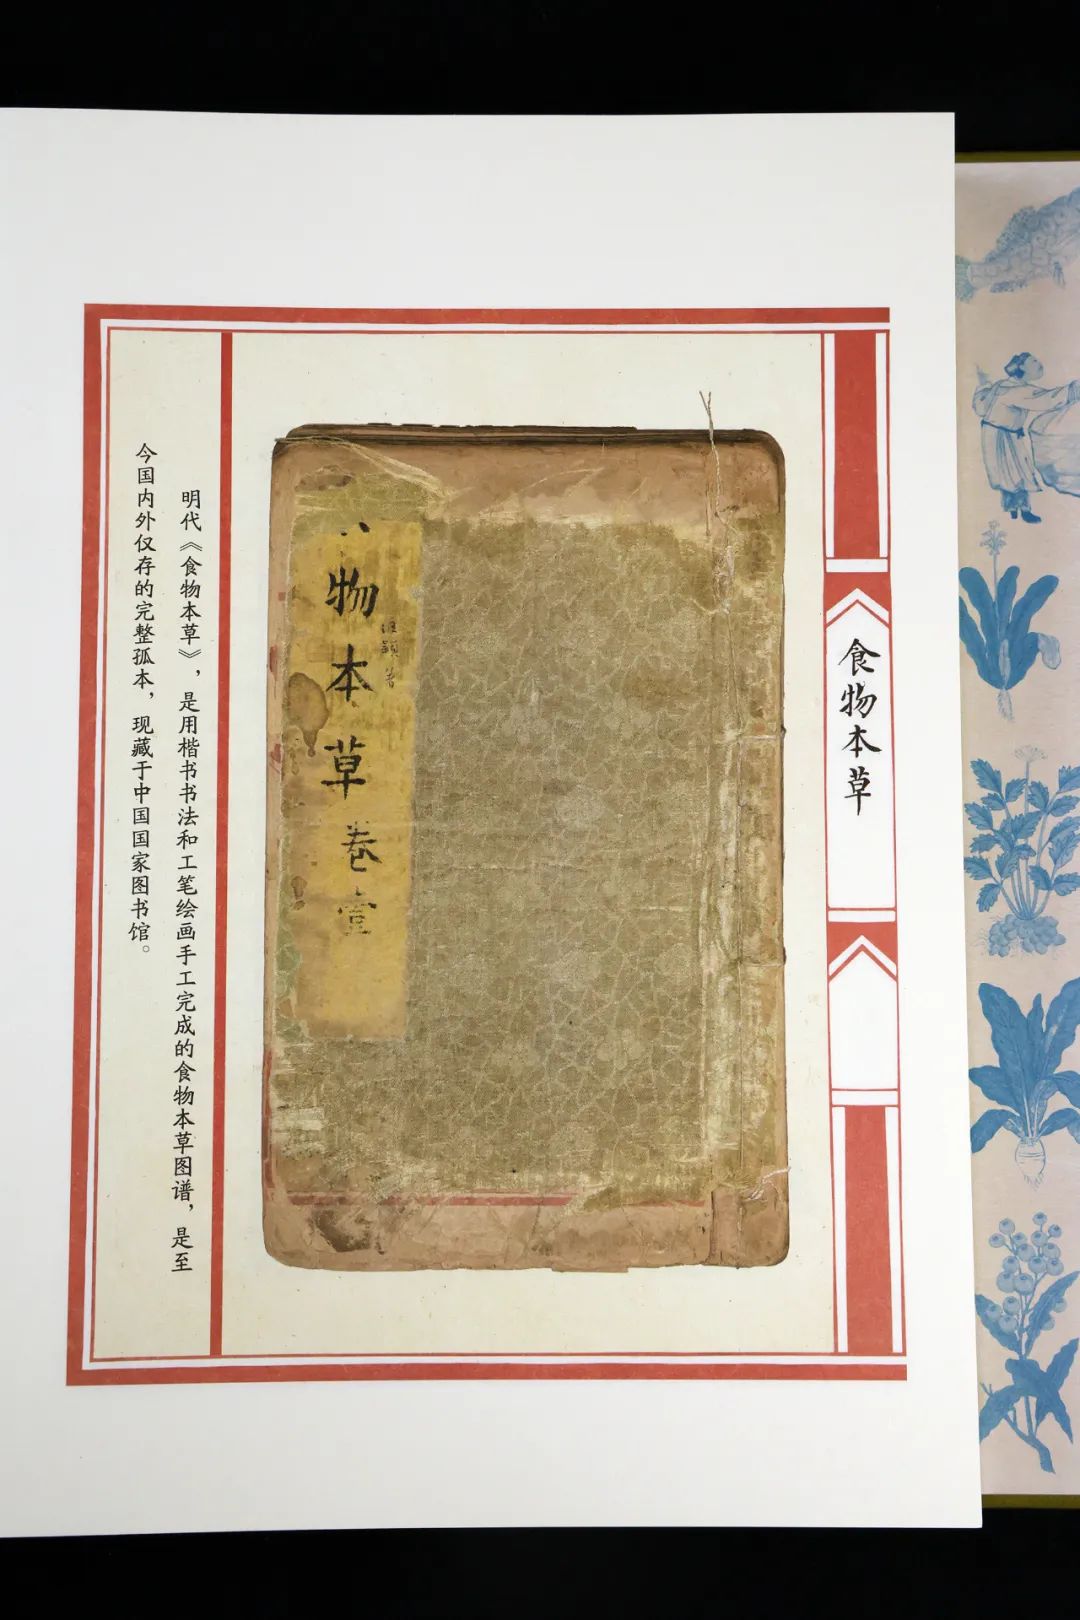 食物本草
物本草卷壹
明代《食物本草》，是用楷书书法和工笔绘画手工完成的食物本草图谱，是至
今国内外仅存的完整孤本，现藏于中国国家图书馆。